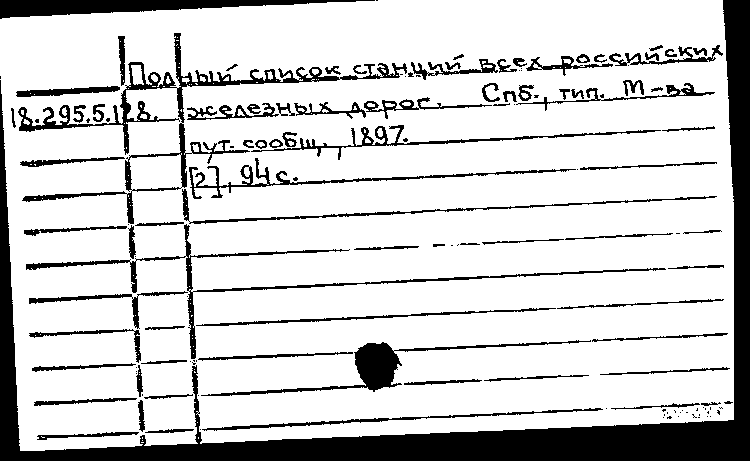 Полный список станций всех российских
18.295.5.128. железных дорог. Спб., тип. М-ва
пут. сообщ., 1897.
[2], 94 с.